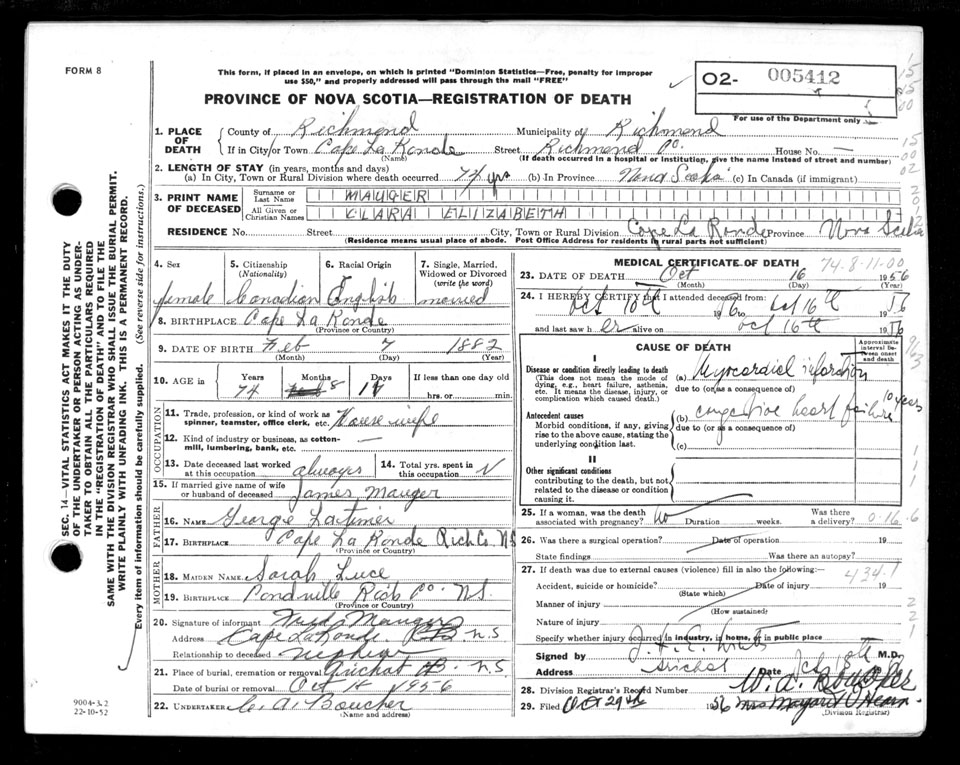 FORM 8
This form, if placed in an envelope, on which is printed "Dominion Statistics—Free, penalty for improper
use $50," and properly addressed will pass through the mail "FREE"
O2- 005412
For use of the Department only
PROVINCE OF NOVA SCOTIA—REGISTRATION OF DEATH
1. PLACE OF DEATH
County of Richmond Municipality of Richmond
If in City or Town Cape La Ronde Street Richmond Co. House No. —
(Name) (If death occurred in a hospital or institution, give the name instead of street and number)
2. LENGTH OF STAY (in years, months and days)
(a) In City, Town or Rural Division where death occurred 74 yrs (b) In Province Nova Scotia (c) In Canada (if immigrant)
3. PRINT NAME OF DECEASED
Surname or Last Name MAUGER
All Given or Christian Names CLARA ELIZABETH
RESIDENCE No. Street City, Town or Rural Division Cape La Ronde Province Nova Scotia
(Residence means usual place of abode. Post Office Address for residents in rural parts not sufficient)
4. Sex
female
5. Citizenship (Nationality)
Canadian
6. Racial Origin
English
7. Single, Married, Widowed or Divorced (write the word)
married
8. BIRTHPLACE Cape La Ronde
(Province or Country)
9. DATE OF BIRTH Feb 7 1882
(Month) (Day) (Year)
10. AGE in
Years Months Days If less than one day old
74 8 hrs. or min.
OCCUPATION
11. Trade, profession, or kind of work as spinner, teamster, office clerk, etc. House wife
12. Kind of industry or business, as cotton-mill, lumbering, bank, etc. —
13. Date deceased last worked at this occupation always
14. Total yrs. spent in this occupation
15. If married give name of wife or husband of deceased James Mauger
FATHER
16. NAME George Latimer
17. BIRTHPLACE Cape La Ronde Rich Co. NS
(Province or Country)
MOTHER
18. MAIDEN NAME Sarah Luce
19. BIRTHPLACE Pondville Rich Co. N.S.
(Province or Country)
20. Signature of informant Mauger
Address Cape La Ronde N.S.
Relationship to deceased nephew
21. Place of burial, cremation or removal Arichat N.S.
Date of burial or removal Oct 1956
22. UNDERTAKER C. A. Boucher
(Name and address)
MEDICAL CERTIFICATE OF DEATH 74-8-11-00
23. DATE OF DEATH Oct 16 1956
(Month) (Day) (Year)
24. I HEREBY CERTIFY that I attended deceased from:
Oct 10th to Oct 16th 19
and last saw her alive on oct 16th 19
CAUSE OF DEATH
Approximate interval between onset and death
I
Disease or condition directly leading to death
(This does not mean the mode of dying, e.g., heart failure, asthenia, etc. It means the disease, injury, or complication which caused death.)
(a) Myocardial
due to (or as a consequence of)
Antecedent causes
Morbid conditions, if any, giving rise to the above cause, stating the underlying condition last.
(b) congestive heart failure 10 years
due to (or as a consequence of)
(c)
II
Other significant conditions
contributing to the death, but not related to the disease or condition causing it.
25. If a woman, was the death associated with pregnancy? no Duration weeks. Was there a delivery? 0-16-6
26. Was there a surgical operation? Date of operation 19
State findings Was there an autopsy?
27. If death was due to external causes (violence) fill in also the following:— 434.1
Accident, suicide or homicide? Date of injury 19
(State which)
Manner of injury
(How sustained)
Nature of injury
Specify whether injury occurred in industry, in home, or in public place
Signed by M.D.
Address Arichat Date
28. Division Registrar's Record Number W. A. Boucher
29. Filed Oct 29th 1956 Mrs Margaret
(Division Registrar)
SEC. 14—VITAL STATISTICS ACT MAKES IT THE DUTY
OF THE UNDERTAKER OR PERSON ACTING AS UNDER-
TAKER TO OBTAIN ALL THE PARTICULARS REQUIRED
IN THE "REGISTRATION OF DEATH" AND TO FILE THE
SAME WITH THE DIVISION REGISTRAR WHO SHALL ISSUE THE BURIAL PERMIT.
WRITE PLAINLY WITH UNFADING INK. THIS IS A PERMANENT RECORD.
Every item of information should be carefully supplied. (See reverse side for instructions.)
9004-3.2
22-10-52